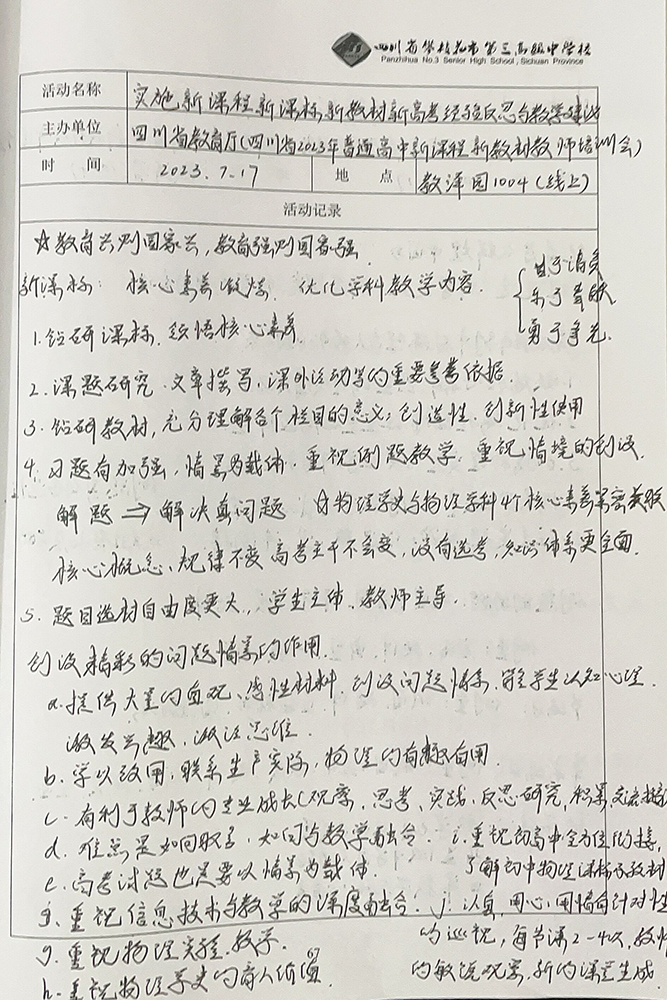 四川省攀枝花市第三高级中学校
Panzhihua No.3 Senior High School, Sichuan Province
活动名称 实施新课程新课标新教材新高考经验反思与教学建议
主办单位 四川省教育厅(四川省2023年普通高中新课程新教材教师培训会)
时 间 2023.7-17 地 点 教泽园1004(线上)
活动记录
☆教育兴则国家兴,教育强则国家强
新课标: 核心素养 优化学科教学内容.
勇于争先
1.钻研课标. 领悟核心素养
2.课题研究.文章撰写,课外活动等的重要参考依据.
3.钻研教材,充分理解各个栏目的意义;创造性.创新性使用
4.习题有加强,情景为载体.重视例题教学.重视情境的创设.
解题⇒解决真问题 物理学史与物理学科4个核心素养紧密关联
核心概念、规律不变 高考主干不会变,没有选考,知识体系更全面.
5.题目选材自由度更大,学生主体.教师主导.
创设精彩的问题情景的作用.
a.提供大量的直观、感性材料.创设问题情景.学生认知心理.
激发兴趣.激活思维.
b.学以致用,联系生产实际,物理的有趣有用.
c.有利于教师的专业成长(观察、思考、实践、反思研究,积累,交流
d.难点是如何取舍.如何与教学融合. i.重视初高中全方位衔接,
e.高考试题也是要以情景为载体. 了解初中物理课标及教材
f.重视信息技术与教学的深度融合. j.认真,用心,用情有针对性
g.重视物理实验.教学. 的巡视,每节课2-4次,教师
h.重视物理学史的育人价值 的敏锐观察,新的课堂生成